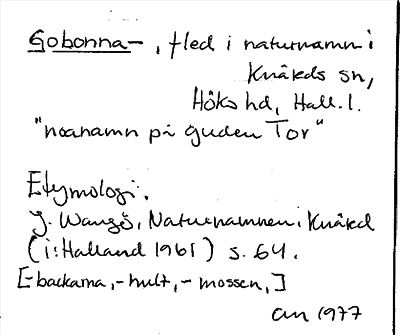 Gobonna-, fled i naturnamn i
Knäreds sn,
Höks hd, Hall. l.
"noanamn på guden Tor"
Etymologi.
J. Wangö, Naturnamnen i Knäred
(i: Halland 1961) s. 64.
[-backarna, -hult, -mossen,]
an 1977